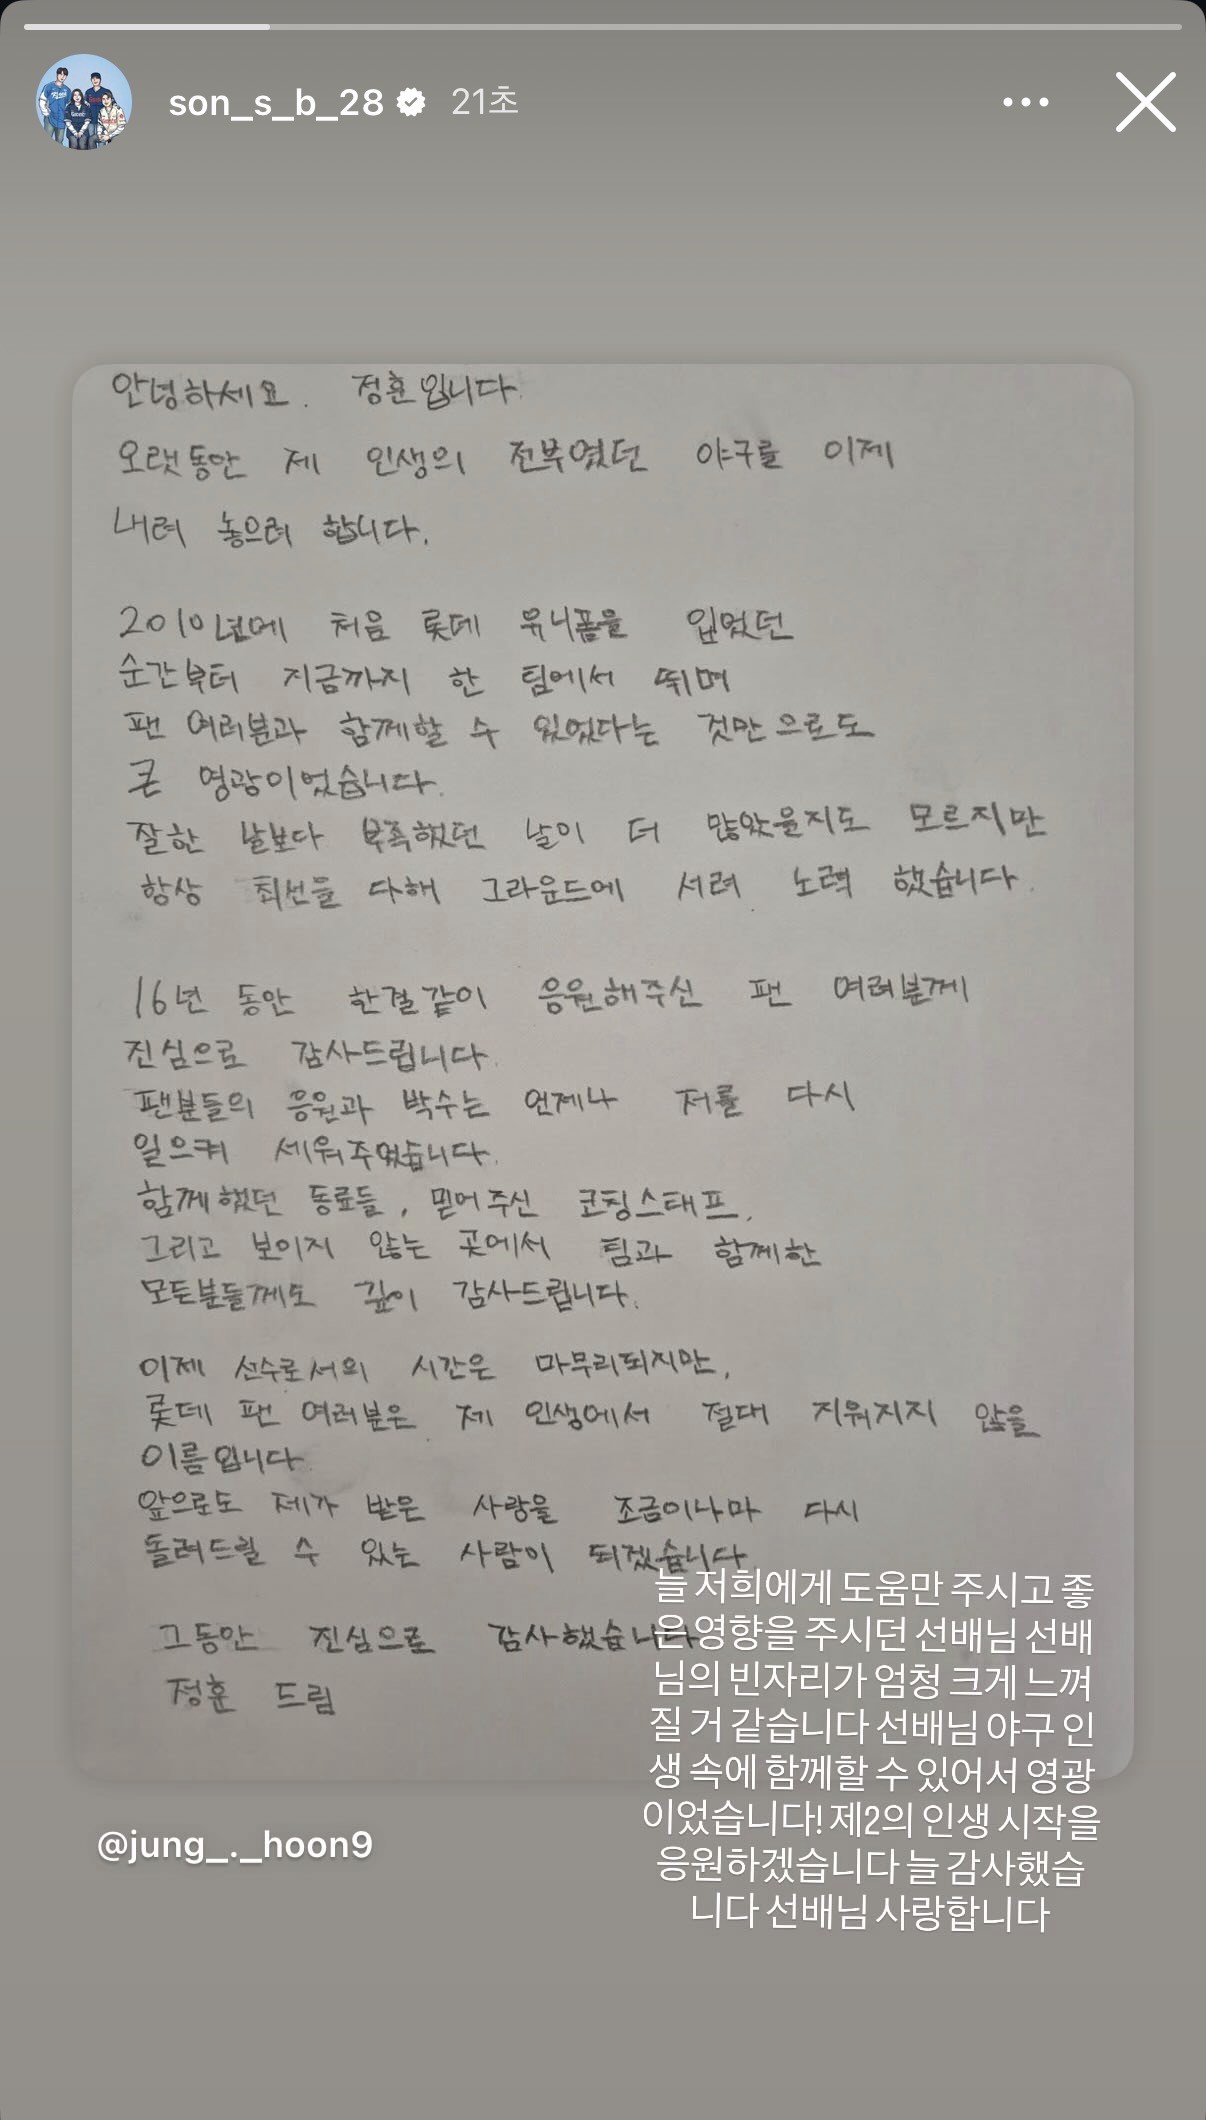 son_s_b_28
21초
안녕하세요. 정훈입니다.
오랫동안 제 인생의 전부였던 야구를 이제
내려 놓으려 합니다.
2010년에 처음 롯데 유니폼을 입었던
순간부터 지금까지 한 팀에서 뛰며
팬 여러분과 함께할 수 있었다는 것만으로도
큰 영광이었습니다.
잘한 날보다 부족했던 날이 더 많았을지도 모르지만
항상 최선을 다해 그라운드에 서려 노력 했습니다.
16년 동안 한결같이 응원해주신 팬 여러분께
진심으로 감사드립니다.
팬분들의 응원과 박수는 언제나 저를 다시
일으켜 세워주었습니다.
함께했던 동료들, 믿어주신 코칭스태프,
그리고 보이지 않는 곳에서 팀과 함께한
모든분들께도 깊이 감사드립니다.
이제 선수로서의 시간은 마무리되지만,
롯데 팬 여러분은 제 인생에서 절대 지워지지 않을
이름입니다
앞으로도 제가 받은 사랑을 조금이나마 다시
돌려드릴 수 있는 사람이 되겠습니다.
그동안 진심으로 감사했습니다
정훈 드림
늘 저희에게 도움만 주시고 좋
은 영향을 주시던 선배님 선배
님의 빈자리가 엄청 크게 느껴
질 거 같습니다 선배님 야구 인
생 속에 함께할 수 있어서 영광
이었습니다! 제2의 인생 시작을
응원하겠습니다 늘 감사했습
니다 선배님 사랑합니다
@jung_._hoon9